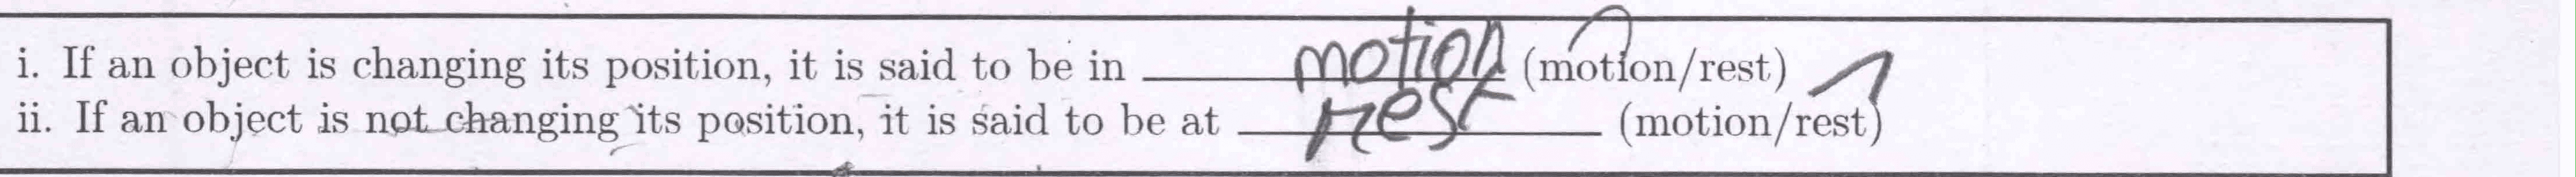 i. If an object is changing its position, it is said to be in motion (motion/rest)
ii. If an object is not changing its position, it is said to be at rest (motion/rest)